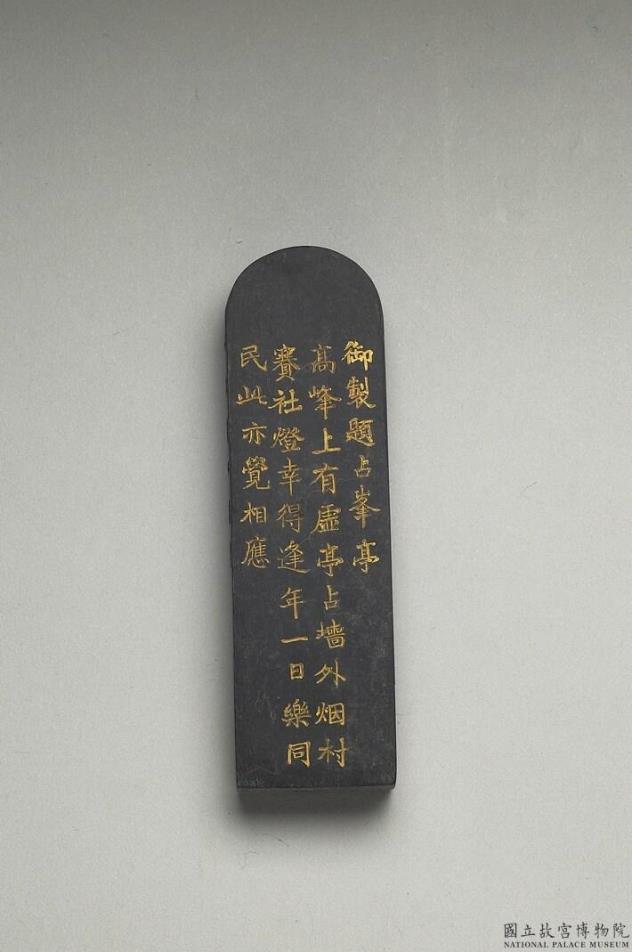 御製題占峯亭
高峰上有虛亭占墻外烟村
賽社燈幸得逢年一日樂同
民此亦覺相應
國立故宮博物院
NATIONAL PALACE MUSEUM